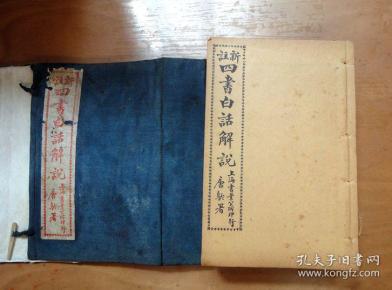 新註
四書白話解說
唐駝署
新註
四書白話解說
上海書業公所印行
唐駝署
孔夫子旧书网
kongfz.com